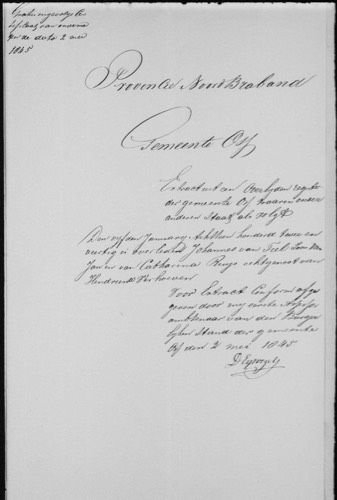 en de dato 2 mei
1845
Provincie Noord Braband
Gemeente Oss
Extract uit en Overlyden register
der gemeente Oss waarin onder
anderen staat als volgt
Den vyfden January Achttien honderd twee en
veertig is overleden Johannes van Teel zoon van
Jan en van Catharina echtgenoot van
Hendrina Verhoeven
Voor Extract Conform afge
geven door my
ambtenaar van den Burger
lyken stand der gemeente
Oss den 2 mei 1845